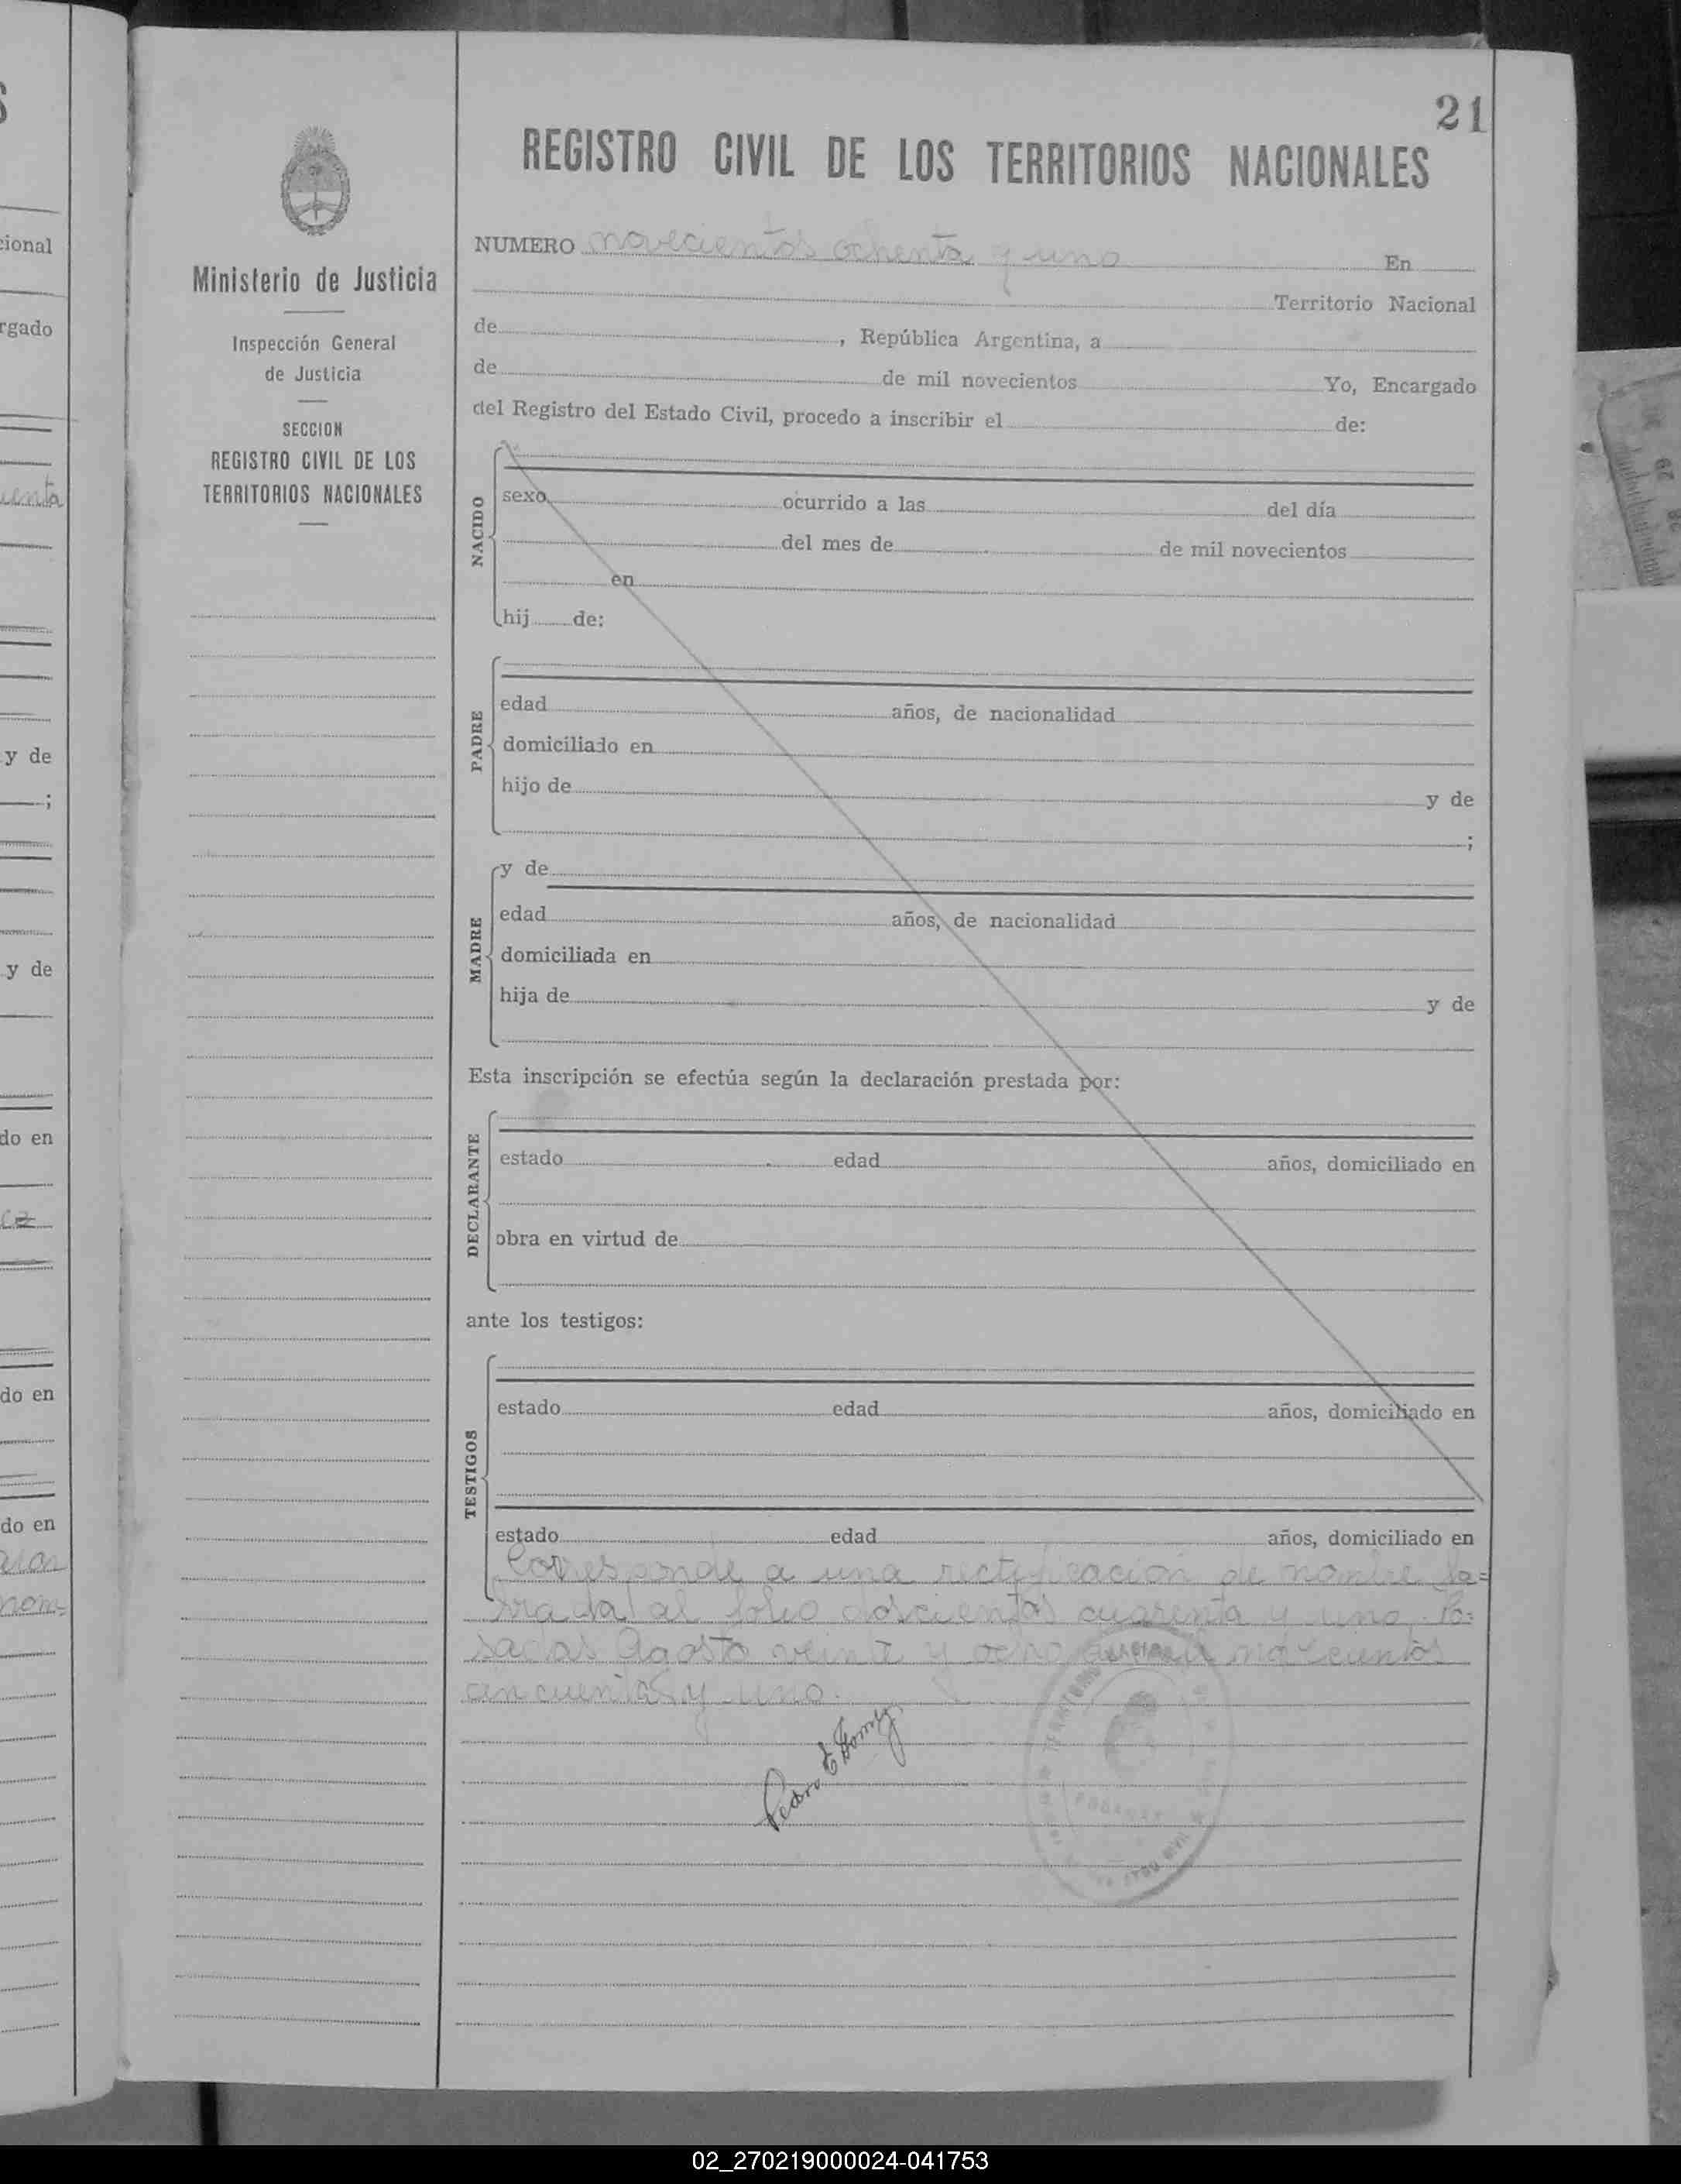 21
REGISTRO CIVIL DE LOS TERRITORIOS NACIONALES
Ministerio de Justicia
Inspección General
de Justicia
SECCION
REGISTRO CIVIL DE LOS
TERRITORIOS NACIONALES
NUMERO novecientos ochenta y uno En
Territorio Nacional
de , República Argentina, a
de de mil novecientos Yo, Encargado
del Registro del Estado Civil, procedo a inscribir el de:
NACIDO
sexo ocurrido a las del día
del mes de de mil novecientos
en
hij de:
PADRE
edad años, de nacionalidad
domiciliado en
hijo de y de
;
MADRE
y de
edad años, de nacionalidad
domiciliada en
hija de y de
Esta inscripción se efectúa según la declaración prestada por:
DECLARANTE
estado edad años, domiciliado en
obra en virtud de
ante los testigos:
TESTIGOS
estado edad años, domiciliado en
estado edad años, domiciliado en
Corresponde a una rectificación de nombre la=
brada al folio doscientos cuarenta y uno. Po=
sadas Agosto veinte y ocho de mil novecientos
cincuenta y uno.
Pedro E Gomez
cional
rgado
uenta
y de
;
y de
do en
do en
do en
nom=
02_270219000024-041753